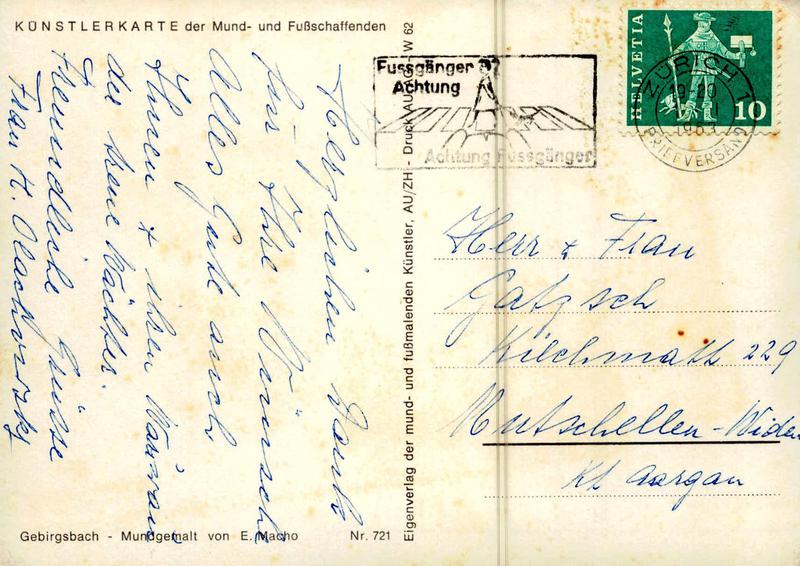 KÜNSTLERKARTE der Mund- und Fußschaffenden
Herzlichen Dank
für Ihre Wünsche
Alles Gute auch
Ihnen + ihrem
der treue Wächter.
Freundliche Grüsse
Frau H.
Gebirgsbach - Mundgemalt von E. Macho Nr. 721
Eigenverlag der mund- und fußmalenden Künstler, AU/ZH - Druck AU W 62
Fussgänger
Achtung
Achtung Fussgänger
HELVETIA
10
ZÜRICH 1
19-20
BRIEFVERSAND
Herr & Frau
Gatzsch
Kilchmatt 229
Mutschellen-Widen
Kt Aargau